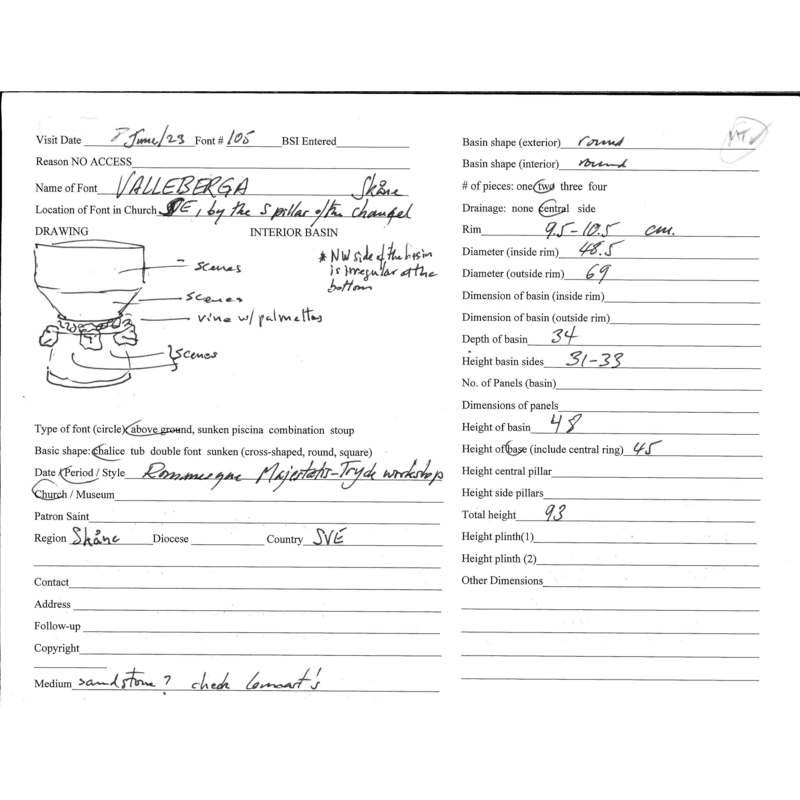 Visit Date 7 June/23 Font # 105 BSI Entered
Reason NO ACCESS
Name of Font VALLEBERGA Skåne
Location of Font in Church SE, by the S pillar of the chancel
DRAWING INTERIOR BASIN
* NW side of the basin
is irregular at the
bottom
scenes
scenes
vine w/ palmettos
scenes
Type of font (circle) above ground, sunken piscina combination stoup
Basic shape: chalice tub double font sunken (cross-shaped, round, square)
Date / Period / Style Romanesque Majestatis-Tryde workshop
Church / Museum
Patron Saint
Region Skåne Diocese Country SVE
Contact
Address
Follow-up
Copyright
Medium sandstone? check
Basin shape (exterior) round
Basin shape (interior) round
# of pieces: one two three four
Drainage: none central side
Rim 9.5-10.5 cm.
Diameter (inside rim) 48.5
Diameter (outside rim) 69
Dimension of basin (inside rim)
Dimension of basin (outside rim)
Depth of basin 34
Height basin sides 31-33
No. of Panels (basin)
Dimensions of panels
Height of basin 48
Height of base (include central ring) 45
Height central pillar
Height side pillars
Total height 93
Height plinth(1)
Height plinth (2)
Other Dimensions